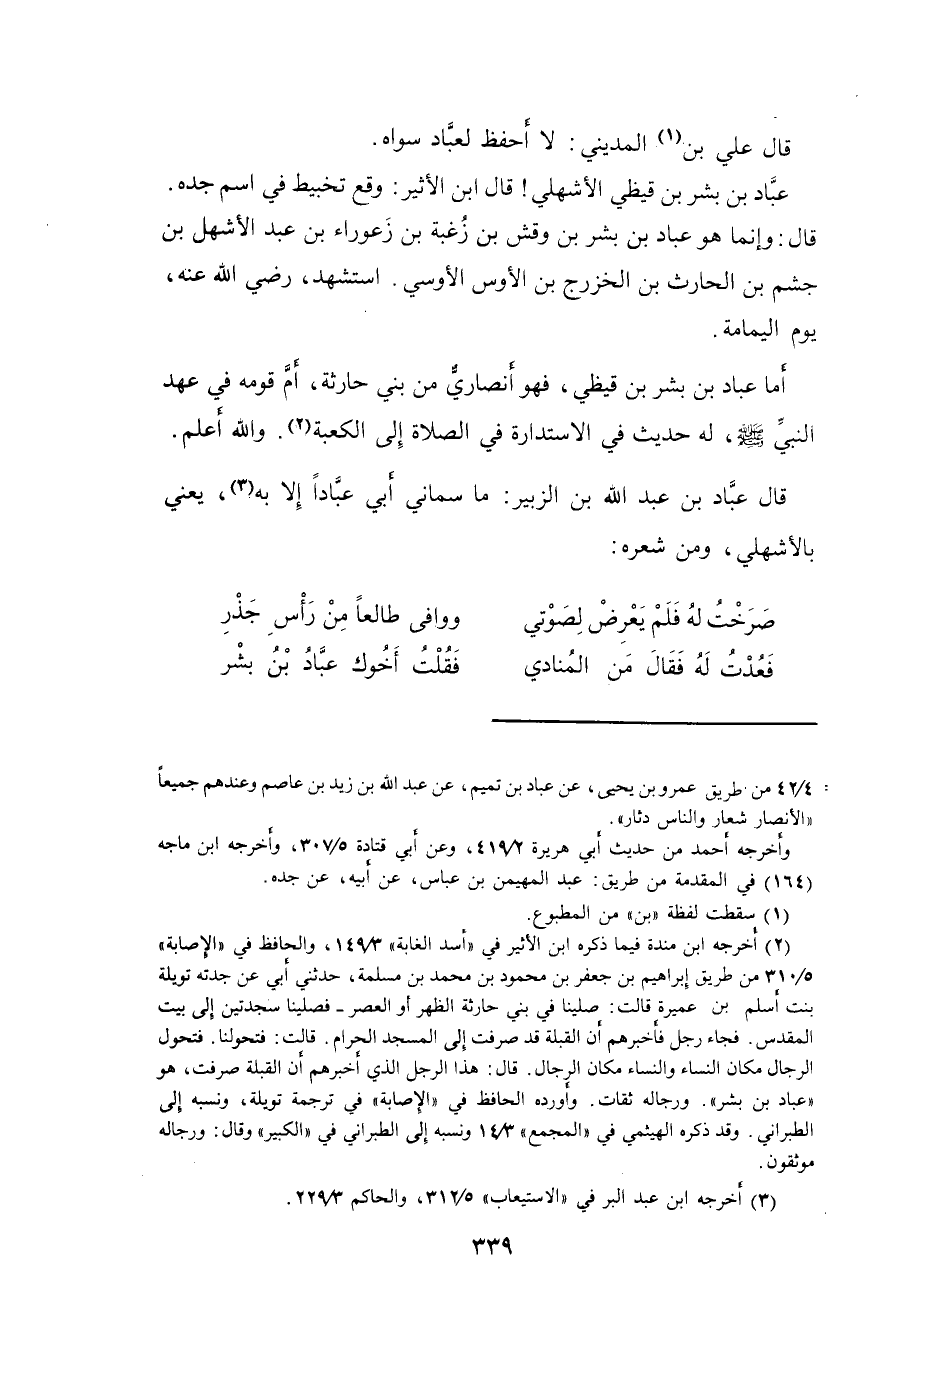 قال علي بن(١) المديني: لا أَحفظ لعبَّاد سواه.
عبَّاد بن بشر بن قيظي الأشهلي! قال ابن الأثير: وقع تخبيط في اسم جده.
قال: وإنما هو عباد بن بشر بن وقش بن زُغبة بن زَعوراء بن عبد الأشهل بن
جشم بن الحارث بن الخزرج بن الأوس الأوسي. استشهد، رضي الله عنه،
يوم اليمامة.
أَما عباد بن بشر بن قيظي، فهو أَنصاريٌّ من بني حارثة، أَمَّ قومه في عهد
النبيِّ ﷺ، له حديث في الاستدارة في الصلاة إلى الكعبة(٢). والله أَعلم.
قال عبَّاد بن عبد الله بن الزبير: ما سماني أَبي عبَّاداً إلا به(٣)، يعني
بالأشهلي، ومن شعره:
صَرَخْتُ لهُ فَلَمْ يَعْرِضْ لِصَوْتي ووافى طالعاً مِنْ رَأْسِ جَذْرِ
فَعُدْتُ لَهُ فَقَالَ مَنِ المُنادي فَقُلْتُ أَخُوك عبَّادُ بْنُ بِشْر
: ٤٢/٤ من طريق عمرو بن يحيى، عن عباد بن تميم، عن عبد الله بن زيد بن عاصم وعندهم جميعاً
«الأنصار شعار والناس دثار».
وأخرجه أحمد من حديث أبي هريرة ٤١٩/٢، وعن أبي قتادة ٣٠٧/٥، وأخرجه ابن ماجه
(١٦٤) في المقدمة من طريق: عبد المهيمن بن عباس، عن أبيه، عن جده.
(١) سقطت لفظة «بن» من المطبوع.
(٢) أخرجه ابن مندة فيما ذكره ابن الأثير في «أسد الغابة» ١٤٩/٣، والحافظ في «الإصابة»
٣١٠/٥ من طريق إبراهيم بن جعفر بن محمود بن محمد بن مسلمة، حدثني أبي عن جدته تويلة
بنت أسلم بن عميرة قالت: صلينا في بني حارثة الظهر أو العصر ـ فصلينا سجدتين إلى بيت
المقدس. فجاء رجل فأخبرهم أن القبلة قد صرفت إلى المسجد الحرام. قالت: فتحولنا. فتحول
الرجال مكان النساء والنساء مكان الرجال. قال: هذا الرجل الذي أخبرهم أن القبلة صرفت، هو
«عباد بن بشر». ورجاله ثقات. وأورده الحافظ في «الإصابة» في ترجمة تويلة، ونسبه إلى
الطبراني. وقد ذكره الهيثمي في «المجمع» ١٤/٣ ونسبه إلى الطبراني في «الكبير» وقال: ورجاله
موثقون.
(٣) أخرجه ابن عبد البر في «الاستيعاب» ٣١٢/٥، والحاكم ٢٢٩/٣.
٣٣٩